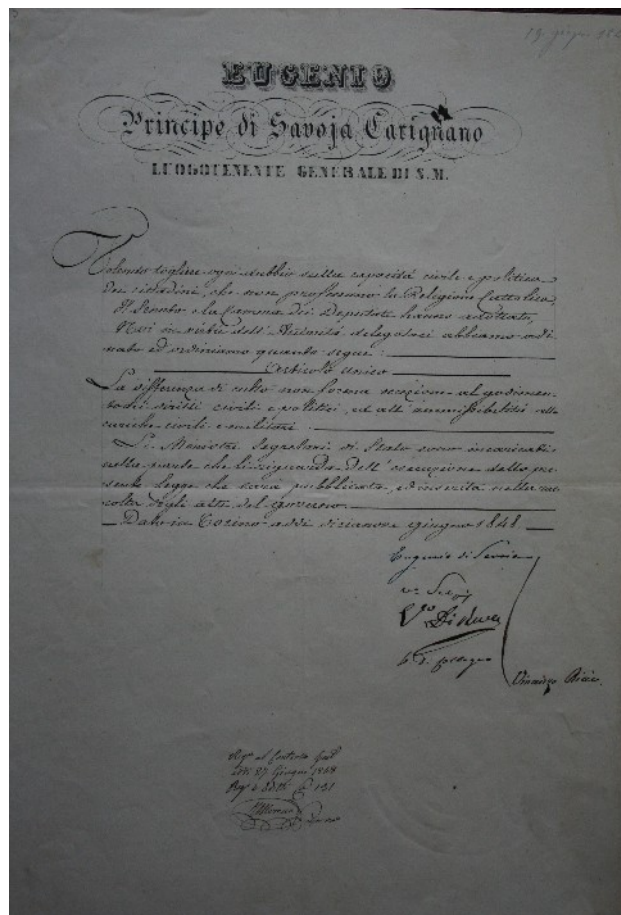 19 giugno 184
EUGENIO
Principe di Savoja Carignano
LUOGOTENENTE GENERALE DI S.M.
Volendo togliere ogni dubbio sulla capacità civile e politica
dei cittadini, che non professano la Religione Cattolica,
Il Senato e la Camera dei Deputati hanno adottato,
Noi in virtù dell'Autorità delegataci abbiamo ordi
nato ed ordiniamo quanto segue:
Articolo unico
La differenza di culto non forma eccezione al godimen
to dei diritti civili e politici, ed all'ammissibilità alle
cariche civili e militari.
Li Ministri Segretari di Stato sono incaricati
nella parte che li riguarda dell'esecuzione della pre
sente legge che sarà pubblicata, ed inserita nella rac
colta degli atti del governo.
Dato in Torino addì diciannove giugno 1848
Eugenio di Savoia
Vo Sclopis
Vo Di Revel
Vincenzo Ricci
Regto al Controllo Genle
addì 27 Giugno 1848
Moreno